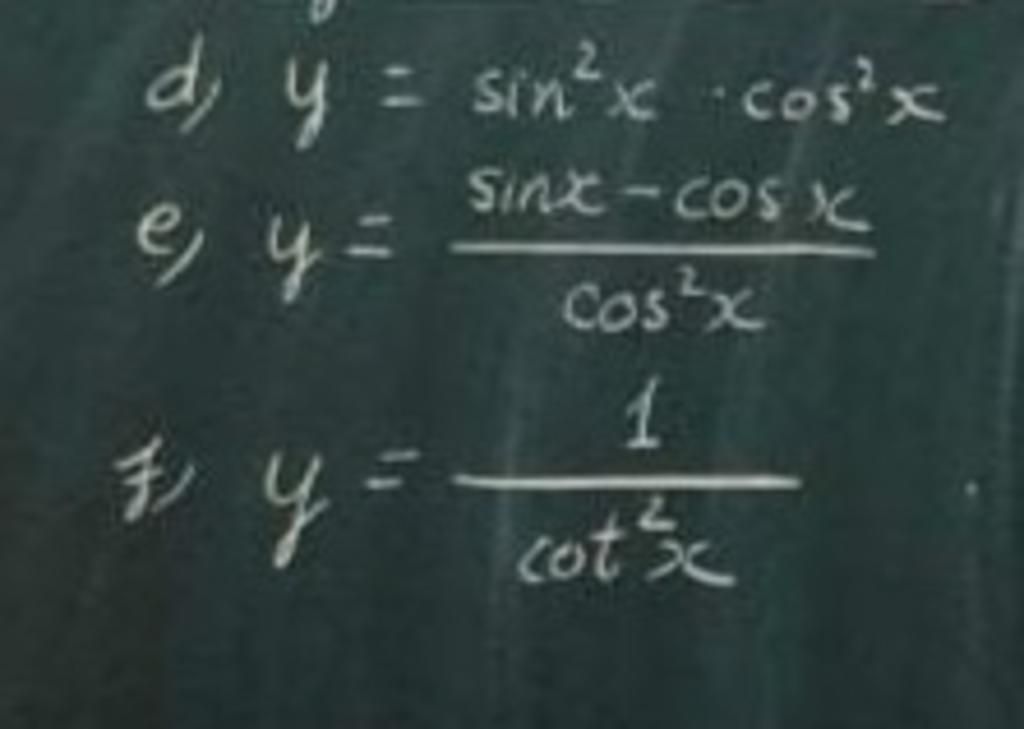 d, y = sin²x · cos²x
e, y = (sinx - cos x) / cos²x
f, y = 1 / cot²x